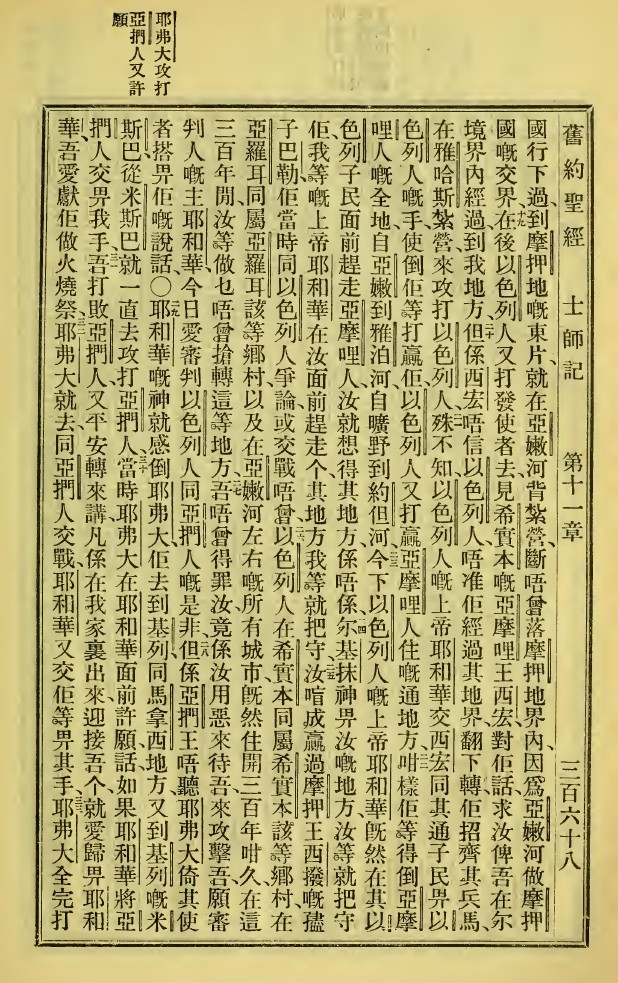 舊約聖經　士師記　第十一章　三百六十八
國行下過、到摩押地嘅東片、就在亞嫩河背紮營、斷唔曾落摩押地界內、因爲亞嫩河做摩押
國嘅交界、十九在後以色列人又打發使者去見希實本嘅亞摩哩王西宏、對佢話、求汝俾吾在尔
境界內經過、到我地方、二十但係西宏唔信以色列人、唔准佢經過其地界、翻下轉佢招齊其兵馬、
在雅哈斯紮營、來攻打以色列人、殊不知以色列人嘅上帝耶和華、交西宏同其通子民畀以
色列人嘅手、使倒佢等打贏佢、以色列人又打贏亞摩哩人住嘅通地方、咁樣佢等得倒亞摩
哩人嘅全地、自亞嫩到雅泊河、自曠野到約但河、今下以色列人嘅上帝耶和華、旣然在其以
色列子民面前趕走亞摩哩人、汝就想得其地方係唔係、尔基抹神畀汝嘅地方、汝等就把守
佢、我等嘅上帝耶和華、在汝面前趕走个其地方、我等就把守、汝喑成贏過摩押王西撥嘅孻
子巴勒、佢當時同以色列人爭論、或交戰唔曾、以色列人在希實本同屬希實本該等鄉村、在
亞羅耳同屬亞羅耳該等鄉村、以及在亞嫩河左右嘅所有城市、旣然住開三百年咁久、在這
三百年閒、汝等做乜唔曾搶轉這等地方、吾唔曾得罪汝、竟係汝用惡來待吾、來攻擊吾、願審
判人嘅主耶和華、今日爱審判以色列人同亞捫人嘅是非、但係亞捫王唔聽耶弗大倚其使
者搭畀佢嘅說話○耶和華嘅神就感倒耶弗大、佢去到基列同馬拿西地方、又到基列嘅米
斯巴、從米斯巴就一直去攻打亞捫人、三十當時耶弗大在耶和華面前許願話、如果耶和華將亞
捫人交畀我手、吾打敗亞捫人、又平安轉來講、凡係在我家裏出來、迎接吾个、就爱歸畀耶和
華、吾爱獻佢做火燒祭、耶弗大就去同亞捫人交戰、耶和華又交佢等畀其手、耶弗大全完打
耶弗大攻打
亞捫人又許
願